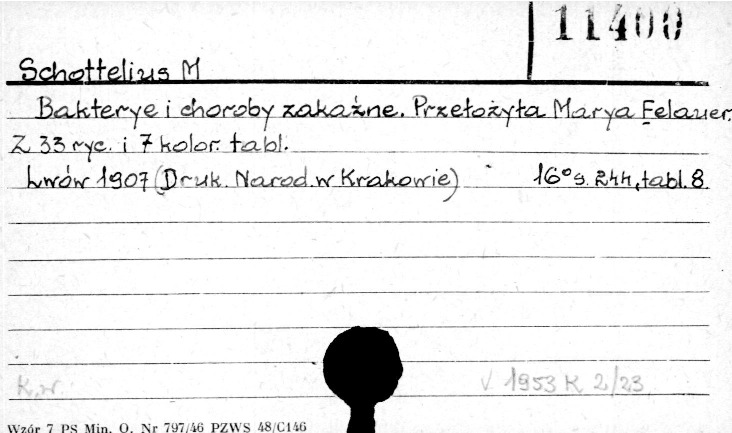 11400
Schottelius M
Bakterye i choroby zakaźne. Przełożyła Marya Felauer.
Z 33 ryc. i 7 kolor. tabl.
Lwów 1907 (Druk. Narod. w Krakowie) 16° s. 244, tabl. 8.
K.w. v 1953 K 2/23
Wzór 7 PS Min. O. Nr 797/46 PZWS 48/C146